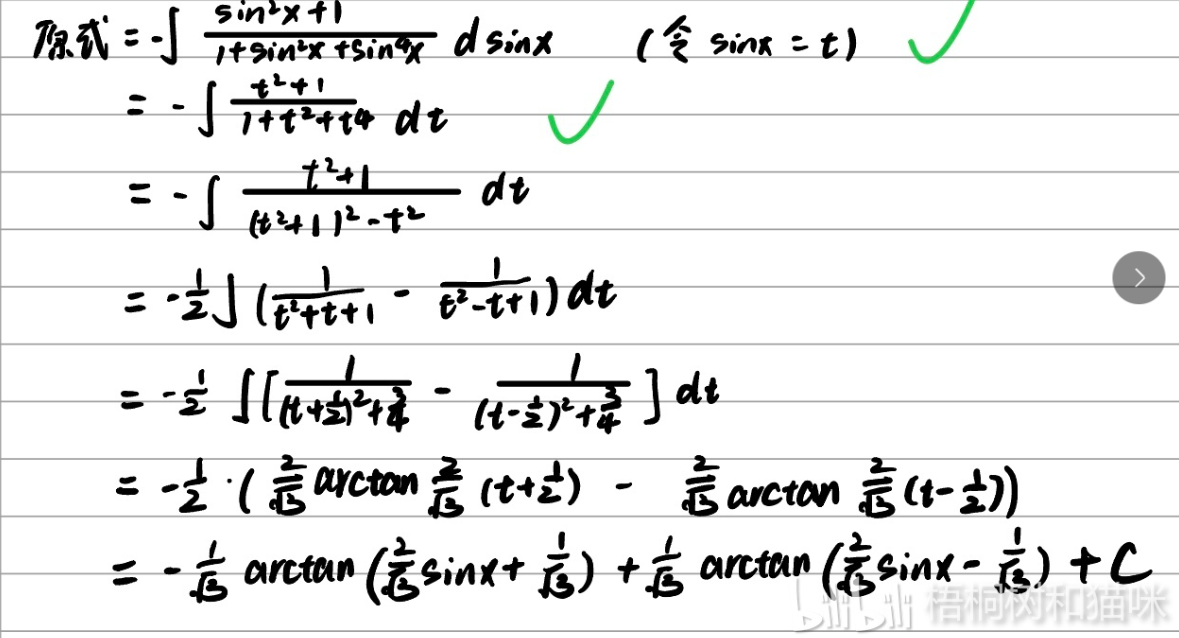 原式 = -∫ (sin²x+1)/(1+sin²x+sin⁴x) d sinx （令 sinx = t）
= -∫ (t²+1)/(1+t²+t⁴) dt
= -∫ (t²+1)/((t²+1)²-t²) dt
= -1/2 ∫ (1/(t²+t+1) - 1/(t²-t+1)) dt
= -1/2 ∫ [1/((t+1/2)²+3/4) - 1/((t-1/2)²+3/4)] dt
= -1/2 · (2/√3 arctan 2/√3 (t+1/2) - 2/√3 arctan 2/√3 (t-1/2))
= -1/√3 arctan (2/√3 sinx + 1/√3) + 1/√3 arctan (2/√3 sinx - 1/√3) + C
bilibili 梧桐树和猫咪